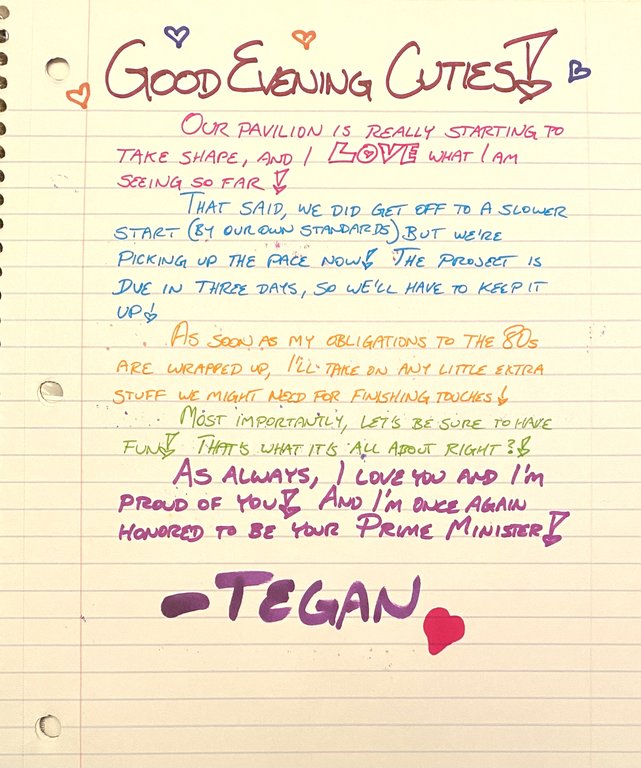 Good Evening Cuties!
Our pavilion is really starting to
take shape, and I LOVE what I am
seeing so far!
That said, we did get off to a slower
start (by our own standards) but we're
picking up the pace now! The project is
due in three days, so we'll have to keep it
up!
As soon as my obligations to the 80s
are wrapped up, I'll take on any little extra
stuff we might need for finishing touches!
Most importantly, let's be sure to have
fun! That's what it's all about right?!
As always, I love you and I'm
proud of you! And I'm once again
honored to be your Prime Minister!
-Tegan